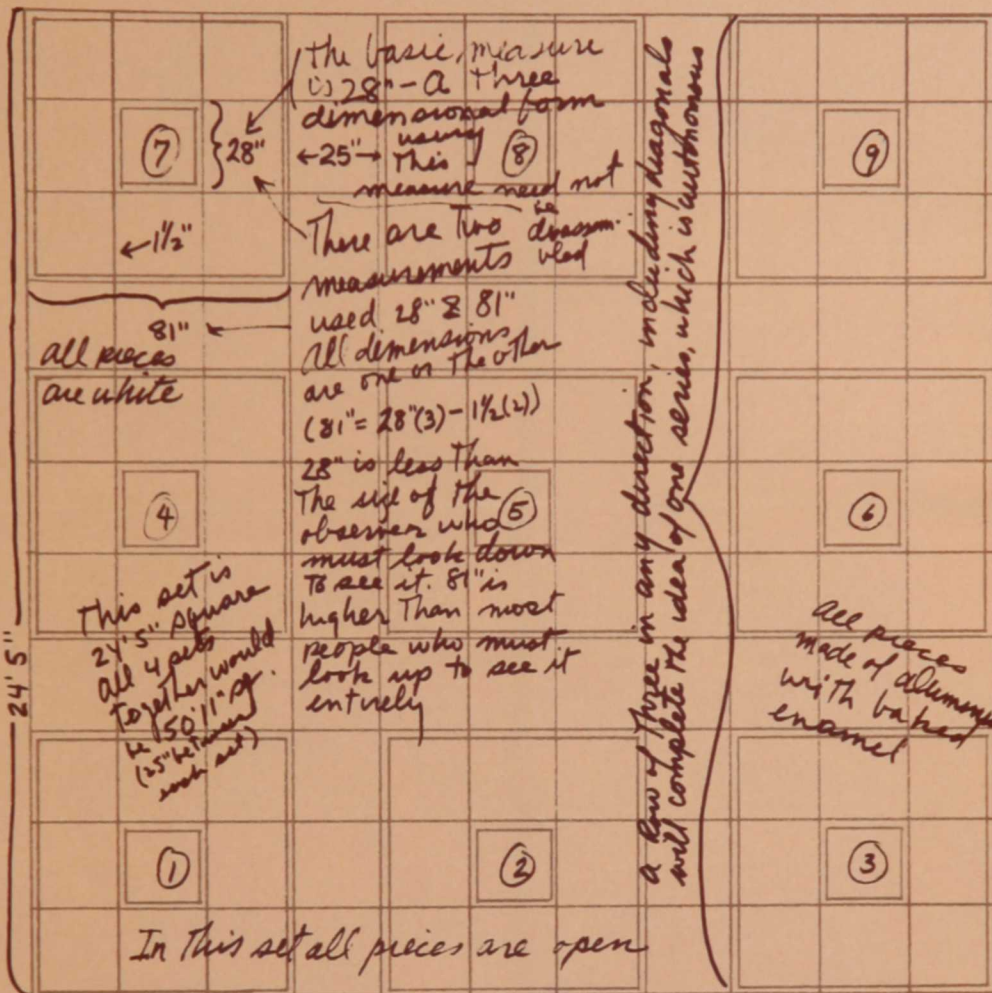 The basic measure
is 28" - A Three
dimensional form
using
This
measure need not
be
disassem-
bled
7
28"
←25"→
8
9
←1½"
There are Two
measurements
used 28" & 81"
All dimensions
are one or the other
(81" = 28"(3) - 1½(2))
28" is less Than
The size of the
observer who
must look down
To see it. 81" is
higher Than most
people who must
look up to see it
entirely
81"
all pieces
are white
4
5
6
24'5"
This set is
24'5" square
all 4 sets
Together would
be 50'11" sq.
(25" between
each set)
a Row of Three in any direction, including diagonals
will complete the idea of one series, which is autonomous
all pieces
made of aluminum
with baked
enamel
1
2
3
In This set all pieces are open